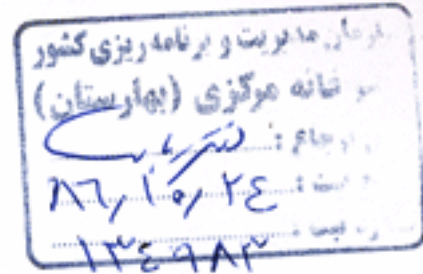 سازمان مدیریت و برنامه ریزی کشور
خانه مرکزی (بهارستان)
ارجاع :
ثبت : ۸۶/۱۰/۲۴
ثبت : ۱۳۴۹۸۲